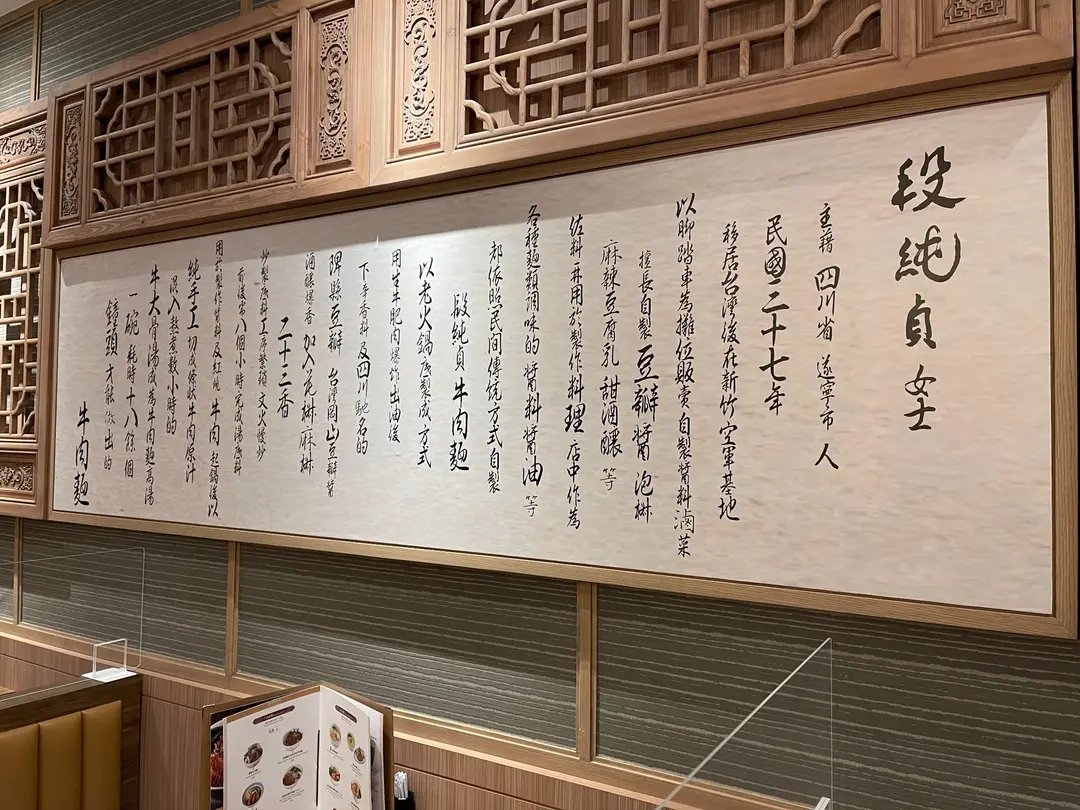 段純貞女士
主籍 四川省 遂寧市 人
民國二十七年
移居台灣後在新竹空軍基地
以腳踏車為攤位販賣自製醬料滷菜
擅長自製豆瓣醬 泡椒
麻辣豆腐乳 甜酒釀 等
佐料 并用於製作料理 店中作為
各種麵類調味的 醬料醬油 等
都依照民間傳統方式自製
段純貞 牛肉麵
以老火鍋底製成方式
用生牛肥肉爆炸出油後
下辛香料及四川馳名的
郫縣豆瓣 台灣岡山豆瓣醬
酒釀爆香 加入花椒麻椒
二十三香
炒製底料工序繁瑣 文火慢炒
前後需八個小時完成湯底料
用於製作醬料及紅燒 牛肉 起鍋後以
純手工 切成條狀牛肉原汁
混入熬煮數小時的
牛大骨湯成為牛肉麵高湯
一碗 耗時十八餘個
鐘頭 才能做出的
牛肉麵